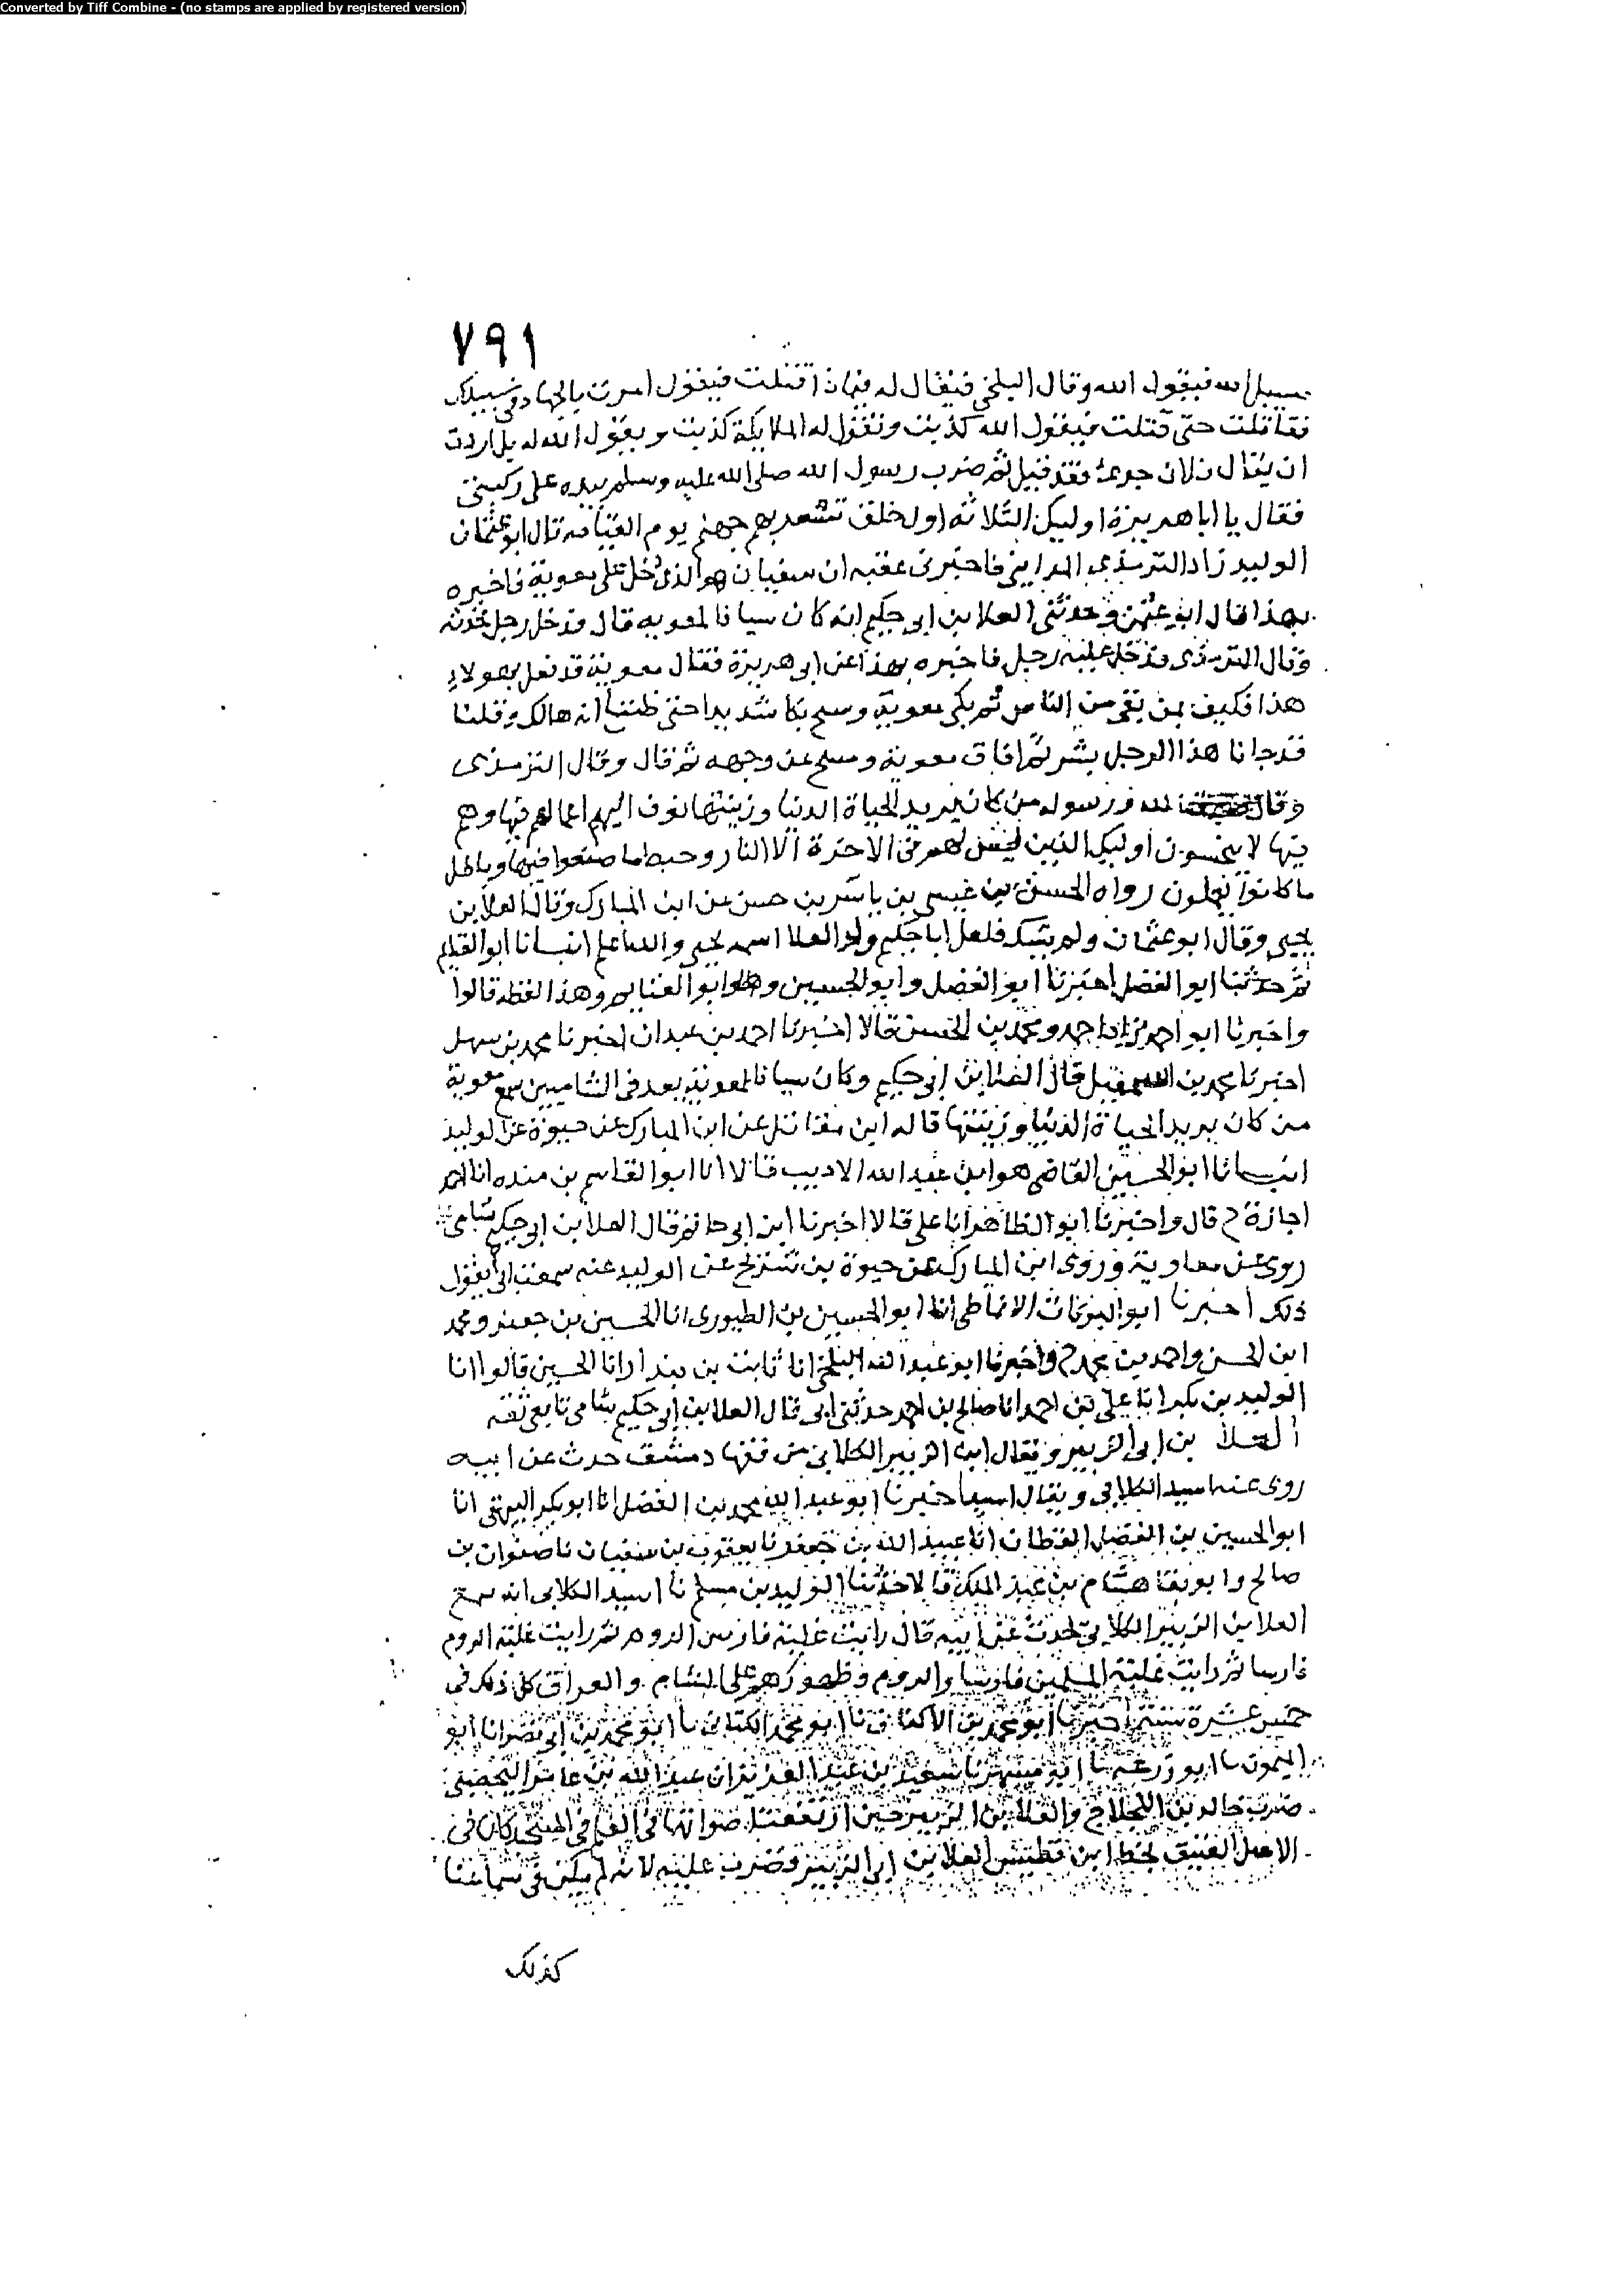 Converted by Tiff Combine - (no stamps are applied by registered version)
٧٩١
سبيل الله فيقول الله وقال البلخي فيقال له فيماذا قتلت فيقول امرت بالجهاد في سبيلك
فقاتلت حتى قتلت فيقول الله كذبت وتقول له الملايكة كذبت ويقول الله له بل اردت
ان يقال فلان جرئ فقد قيل ثم ضرب رسول الله صلى الله عليه وسلم بيده على ركبتي
فقال يا ابا هريرة اوليك الثلاثه اول خلق تسعر بهم جهنم يوم القيامه قال ابو عثمان
الوليد زاد الترمذي المدايني فاخبرني عقبه ان سفيان هو الذي دخل على معوية فاخبره
بهذا قال ابو عثمن وحدثني العلا بن ابي حكيم انه كان سيافا لمعويه قال فدخل رجل فحدثه
وقال الترمذي فدخل عليه رجل فاخبره بهذا عن ابي هريرة فقال معوية قد فعل بهولاء
هذا فكيف بمن بقى من الناس ثم بكى معوية بكا شديدا حتى ظننا انه هالك وقلنا
قد جانا هذا الرجل بشر ثم افاق معوية ومسح عن وجهه ثم قال وقال الترمذي
وقال الله ورسوله من كان يريد الحياة الدنيا وزينتها نوف اليهم اعمالهم فيها وهم
فيها لا يبخسون اوليك الذين ليس لهم في الاخرة الا النار وحبط ما صنعوا فيها وباطل
ما كانوا يعملون رواه الحسن بن عيسى بن ياسر بن حسن عن ابن المبارك وقال العلا بن
يحيى وقال ابو عثمان ولم يشك فلعل ابا حكيم والد العلا اسمه يحيى والله اعلم انبانا ابو الغنايم
ثم حدثنا ابو الفضل اخبرنا ابو الفضل وابو الحسين وابو الغنايم وهذا لفظه قالوا
واخبرنا ابو احمد زاد احمد ومحمد بن الحسن قالا اخبرنا احمد بن عبدان اخبرنا محمد بن سهل
اخبرنا محمد بن اسمعيل قال العلا بن ابي حكيم وكان سيافا لمعوية يعد في الشاميين سمع معوية
من كان يريد الحياة الدنيا وزينتها قاله ابن مقاتل عن ابن المبارك عن حيوة عن الوليد
انبانا ابو الحسين القاضي هو ابن عبد الله الاديب قالا انا ابو القاسم بن منده انا احمد
اجازة ح قال واخبرنا ابو الطاهر انا علي قالا اخبرنا ابن ابي حاتم قال العلا بن ابي حكيم شامي
روى عن معاوية وروى ابن المبارك عن حيوة بن شريح عن الوليد عنه سمعت ابي يقول
ذلك اخبرنا ابو البركات الانماطي انا ابو الحسين بن الطيوري انا الحسين بن جعفر ومحمد
ابن الحسن واحمد بن محمد ح واخبرنا ابو عبد الله البلخي انا ثابت بن بندار انا الحسين قالوا انا
الوليد بن بكر انا علي بن احمد انا صالح بن احمد حدثني ابي قال العلا بن ابي حكيم شامي تابعي ثقه
العلا بن ابي الزبير ويقال ابن الزبير الكلابي من فقها دمشق حدث عن ابيه
روى عنه اسيد الكلابي ويقال اسيد اخبرنا ابو عبد الله محمد بن الفضل انا ابو بكر البيهقي انا
ابو الحسين بن الفضل القطان انا عبد الله بن جعفر نا يعقوب بن سفيان نا صفوان بن
صالح وابو تقا هشام بن عبد الملك قالا حدثنا الوليد بن مسلم نا اسيد الكلابي انه سمع
العلا بن الزبير الكلابي يحدث عن ابيه قال رايت غلبة فارس الروم ثم رايت غلبة الروم
فارسا ثم رايت غلبة المسلمين فارسا والروم وظهورهم على الشام والعراق كل ذلك في
خمس عشرة سنة اخبرنا ابو محمد بن الاكفاني نا ابو محمد الكتاني نا ابو محمد بن ابي نصر انا ابو
الميمون نا ابو زرعة نا ابو مسهر نا سعيد بن عبد العزيز ان عبد الله بن عامر اليحصبي
ضرب خالد بن اللجلاج والعلا بن الزبير حين ارتفعت اصواتهما في العلم في المسجد كان في
الاصل العتيق بخط ابن فطيس العلا بن ابي الزبير وضرب عليه لانه لم يكن في سماعنا
كذلك